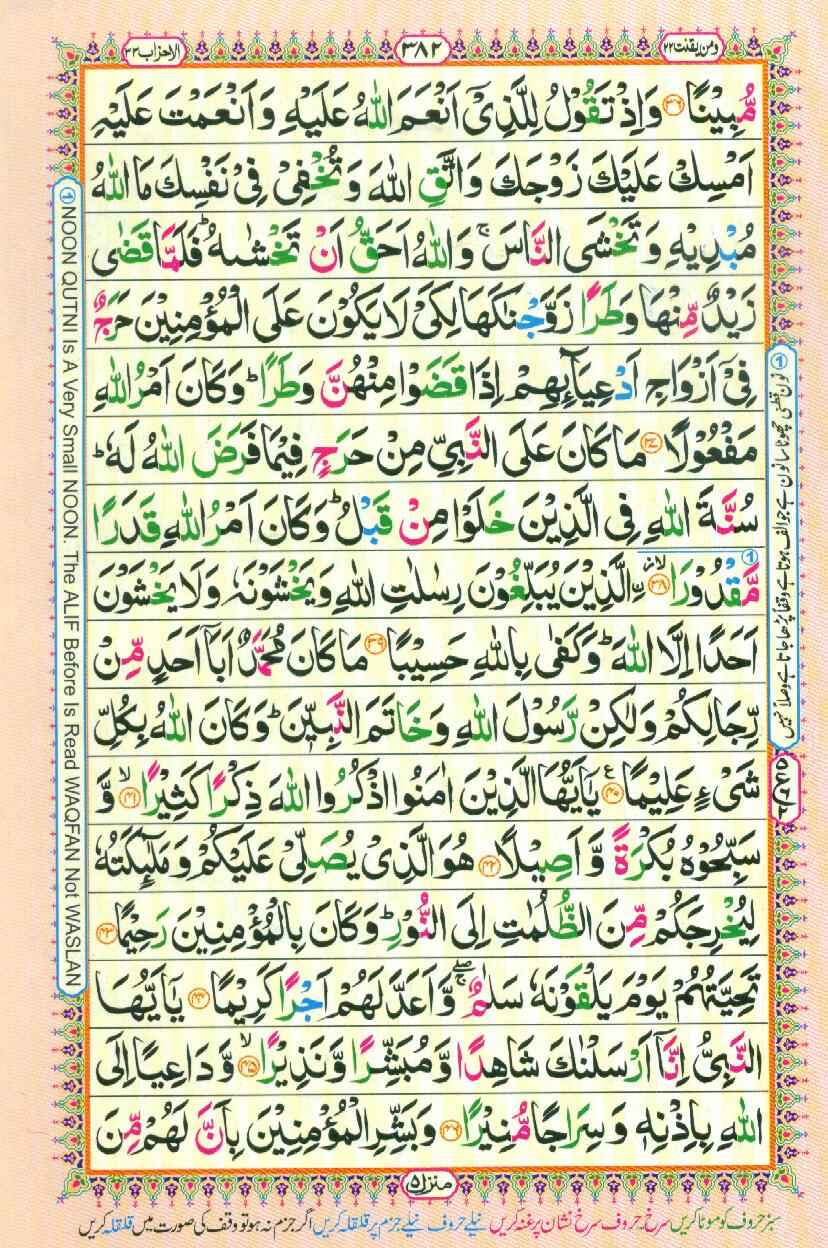 الاحزاب ٣٣
٣٨٢
ومن يقنت ٢٢
مُّبِيْنًا ﴿۳۶﴾ وَاِذْ تَقُوْلُ لِلَّذِيْۤ اَنْعَمَ اللّٰهُ عَلَيْهِ وَ اَنْعَمْتَ عَلَيْهِ
اَمْسِكْ عَلَيْكَ زَوْجَكَ وَاتَّقِ اللّٰهَ وَ تُخْفِيْ فِيْ نَفْسِكَ مَا اللّٰهُ
مُبْدِيْهِ وَ تَخْشَى النَّاسَ ۚ وَ اللّٰهُ اَحَقُّ اَنْ تَخْشٰىهُ ؕ فَلَمَّا قَضٰى
زَيْدٌ مِّنْهَا وَطَرًا زَوَّجْنٰكَهَا لِكَيْ لَا يَكُوْنَ عَلَى الْمُؤْمِنِيْنَ حَرَجٌ
فِيْۤ اَزْوَاجِ اَدْعِيَآىِٕهِمْ اِذَا قَضَوْا مِنْهُنَّ وَطَرًا ؕ وَكَانَ اَمْرُ اللّٰهِ
مَفْعُوْلًا ﴿۳۷﴾ مَا كَانَ عَلَى النَّبِيِّ مِنْ حَرَجٍ فِيْمَا فَرَضَ اللّٰهُ لَهٗ ؕ
سُنَّةَ اللّٰهِ فِي الَّذِيْنَ خَلَوْا مِنْ قَبْلُ ؕ وَكَانَ اَمْرُ اللّٰهِ قَدَرًا
مَّقْدُوْرَا ﴿۳۸﴾ ۙ ِ۟الَّذِيْنَ يُبَلِّغُوْنَ رِسٰلٰتِ اللّٰهِ وَيَخْشَوْنَهٗ وَلَا يَخْشَوْنَ
اَحَدًا اِلَّا اللّٰهَ ؕ وَكَفٰى بِاللّٰهِ حَسِيْبًا ﴿۳۹﴾ مَا كَانَ مُحَمَّدٌ اَبَاۤ اَحَدٍ مِّنْ
رِّجَالِكُمْ وَلٰكِنْ رَّسُوْلَ اللّٰهِ وَخَاتَمَ النَّبِيّٖنَ ؕ وَكَانَ اللّٰهُ بِكُلِّ
شَيْءٍ عَلِيْمًا ﴿۴۰﴾ ع يٰۤاَيُّهَا الَّذِيْنَ اٰمَنُوا اذْكُرُوا اللّٰهَ ذِكْرًا كَثِيْرًا ﴿۴۱﴾ ۙ وَّ
سَبِّحُوْهُ بُكْرَةً وَّ اَصِيْلًا ﴿۴۲﴾ هُوَ الَّذِيْ يُصَلِّيْ عَلَيْكُمْ وَ مَلٰٓىِٕكَتُهٗ
لِيُخْرِجَكُمْ مِّنَ الظُّلُمٰتِ اِلَى النُّوْرِ ؕ وَكَانَ بِالْمُؤْمِنِيْنَ رَحِيْمًا ﴿۴۳﴾
تَحِيَّتُهُمْ يَوْمَ يَلْقَوْنَهٗ سَلٰمٌ ۖۚ وَّ اَعَدَّ لَهُمْ اَجْرًا كَرِيْمًا ﴿۴۴﴾ يٰۤاَيُّهَا
النَّبِيُّ اِنَّاۤ اَرْسَلْنٰكَ شَاهِدًا وَّ مُبَشِّرًا وَّ نَذِيْرًا ﴿۴۵﴾ ۙ وَّ دَاعِيًا اِلَى
اللّٰهِ بِاِذْنِهٖ وَ سِرَاجًا مُّنِيْرًا ﴿۴۶﴾ وَ بَشِّرِ الْمُؤْمِنِيْنَ بِاَنَّ لَهُمْ مِّنَ
منزل ٥
سبز حروف کو موٹا کریں سرخ حروف سرخ نشان پر غنہ کریں نیلے حروف نیلے جزم پر قلقلہ کریں اگر جزم نہ ہو تو وقف کی صورت میں قلقلہ کریں
① NOON QUTNI Is A Very Small NOON. The ALIF Before Is Read WAQFAN Not WASLAN
① نون قطنی چھوٹا سا نون ہے جو الف ہوتا ہے وقفاً پڑھا جاتا ہے وصلاً نہیں